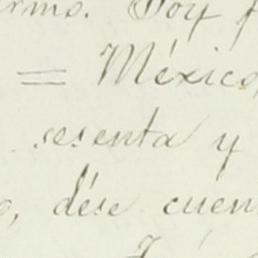 Doy f
= México
sesenta y
dése cuen